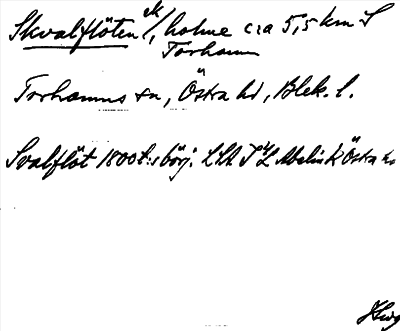 Skvalflöten /, holme ca 5,5 km S
Torhamn
Torhamns sn, Östra hd, Blek. l.
Svalflöt 1800t:s börj. LSA Östra